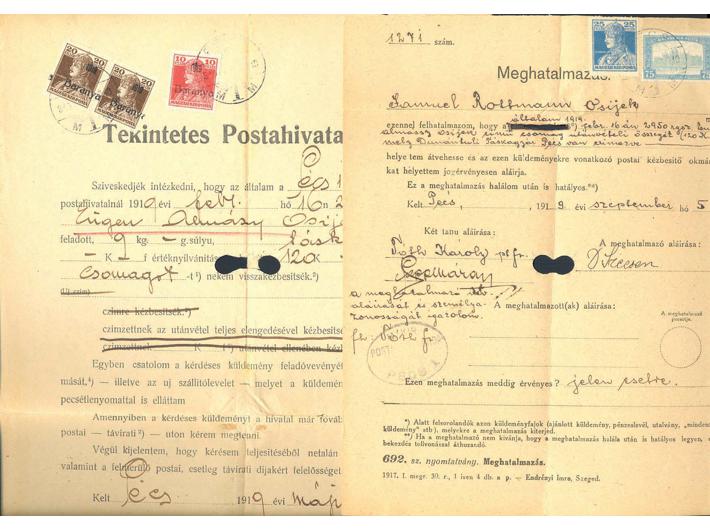 20 20
10
Baranya
Baranya
Baranya
MAGYAR KIR.POSTA
Tekintetes Postahivata
Szíveskedjék intézkedni, hogy az általam a Pécs 1
postahivatalnál 1919 évi febr. hó 16n 2
Eugen Almásy Osije
feladott, 9 kg. — g. súlyu, tásk
— K — f értéknyilvánítás 120K
csomagot -t¹) nekem visszakézbesítsék.²)
(Uj cím)
címre kézbesítsék.³)
címzettnek az utánvétel teljes elengedésével kézbesítse
címzettnek K f ⁹) utánvétel ellenében kéz
Egyben csatolom a kérdéses küldemény feladóvevényé
mását,⁴) — illetve az uj szállitólevelet — melyet a küldemé
pecsétlenyomattal is elláttam
Amennyiben a kérdéses küldeményt a hivatal már továb
postai — távirati⁵) — uton kérem megtenni.
Végül kijelentem, hogy kérésem teljesítéséből netalán
valamint a felmerülő postai, esetleg távirati díjakért felelősséget
Kelt Pécs 1919 évi máj
1271 szám.
25 25
75 75
Meghatalmazás.
Samuel Rothmann Osijek
ezennel felhatalmazom, hogy a
általam 1919. febr. 16án 2950 rgsz.
almassy osijek című csomag utánvételi összegét (120 K
mely Dunántúli Táskagyár Pécs van címezve
helyettem átvehesse és az ezen küldeményekre vonatkozó postai kézbesítő okmá
kat helyettem jogérvényesen aláírja.
Ez a meghatalmazás halálom után is hatályos.**)
Kelt Pécs, 1919 évi szeptember hó 5
Két tanu aláírása:
A meghatalmazó aláírása:
Tóth Károly
A meghatalmazott(ak) aláírása:
a meghatalmazó
aláírását és személya-
zonosságát igazolom.
A meghatalmazó
pecsétje.
Ezen meghatalmazás meddig érvényes? jelen esetre.
*) Alatt felsorolandók azon küldeményfajok (ajánlott küldemény, pénzeslevél, utalvány, „minden
küldemény" stb), melyekre a meghatalmazás kiterjed.
**) Ha a meghatalmazó nem kívánja, hogy a meghatalmazás halála után is hatályos legyen,
bekezdés tollvonással áthuzandó.
692. sz. nyomtatvány. Meghatalmazás.
1917. I. megr. 30. r., 1 ízen 4 db. a p. — Endrényi Imre, Szeged.